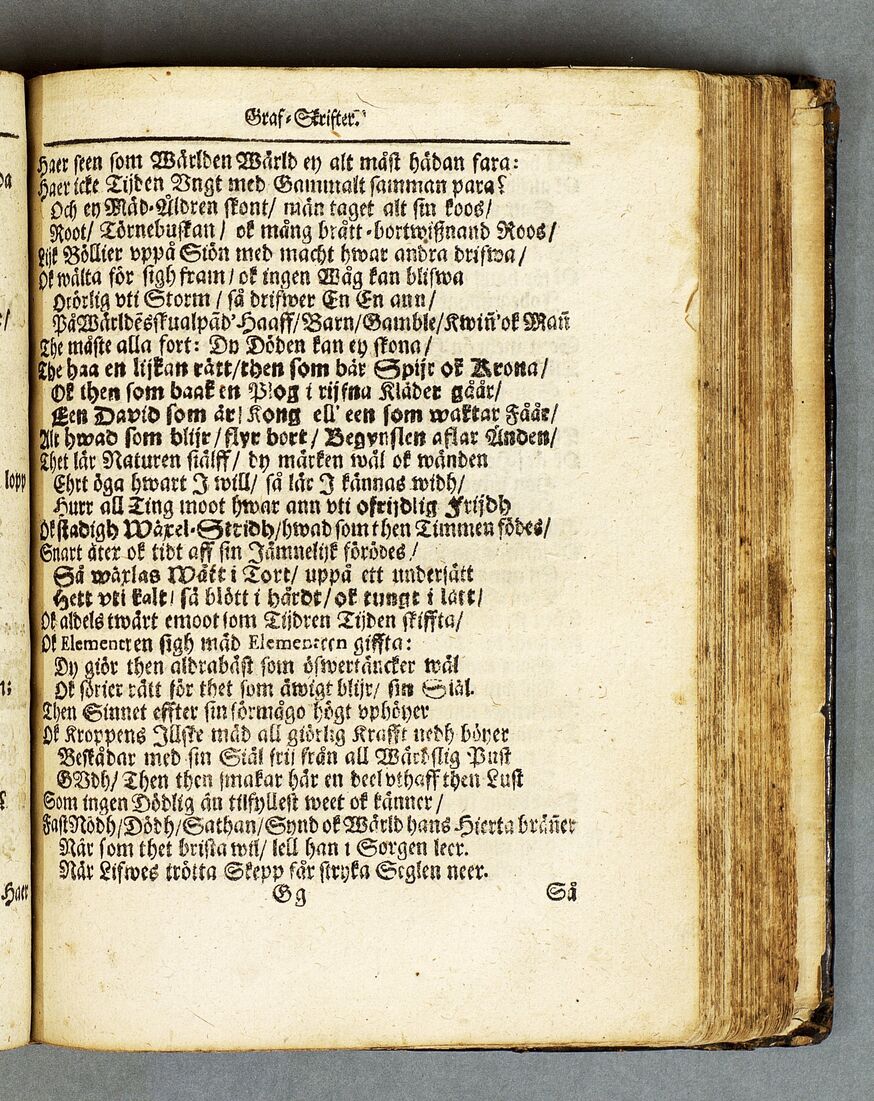 Graf-Skrifter.
Haer seen som Wärlden Wärld ey alt måst hädan fara:
Haer icke Tijden Vngt med Gammalt samman para?
Och ey Mäd-Åldren skont/ män taget alt sin koos/
Root/ Törnebuskan/ ok mång brått-bortwißnand Roos/
Lijk Böllier vppå Siön med macht hwar andra drifwa/
Ok wälta för sigh fram/ ok ingen Wåg kan blifwa
Orörlig vti Storm/ så drifwer En En ann/
På Wärldēs skualpād' Haaff/Barn/Gamble/Kwiñ'ok Mañ
The måste alla fort: Dy Döden kan ey skona/
The haa en lijkan rätt/then som bär Spijr ok Krona/
Ok then som baak en Plog i rijfna Kläder gåår/
Een David som är/ Kong ell' een som waktar Fåår/
Alt hwad som blijr/ flyr bort/ Begynslen aflar Änden/
Thet lär Naturen siälff/ dy märken wäl ok wänden
Ehrt öga hwart I will/ så lär I kännas widh/
Hurr all Ting moot hwar ann vti ofrijdlig Frijdh
Ok stadigh Wäxel-Stridh/hwad som then Timmen födes/
Snart åter ok tidt aff sin Jämnelijk förödes/
Så wäxlas Wått i Tort/ uppå ett undersått
Hett vti kalt/ så blött i hårdt/ ok tungt i lätt/
Ok aldels twärt emoot som Tijdren Tijden skiffta/
Ok Elementen sigh mäd Elementeen giffta:
Dy giör then aldrabäst som öfwertäncker wäl
Ok sörier rätt för thet som äwigt blijr/ sin Siäl.
Then Sinnet effter sin förmågo högt vphöyer
Ok Kroppens Illske mäd all giörlig Krafft nedh böyer
Beskådar med sin Siäl frij från all Wärdslig Pust
GVdh/ Then then smakar här en deel vthaff then Lust
Som ingen Dödlig än tilfyllest weet ok känner/
Fast Nödh/Dödh/Sathan/Synd ok Wärld hans Hierta bräñer
När som thet brista wil/ lell han i Sorgen leer.
När Lifwes trötta Skepp får stryka Seglen neer.
Gg
Så
lopp
Haer